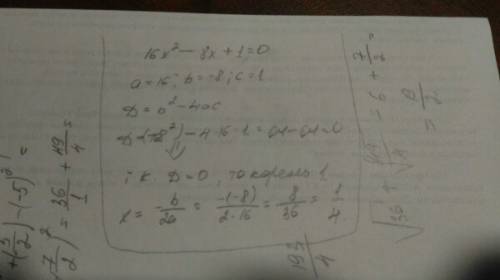 16x² - 8x + 1 = 0
a = 16; b = -8; c = 1
D = b² - 4ac
D = (-8²) - 4·16·1 = 64 - 64 = 0
т.к. D = 0, то корень 1
x = -b/2a = -(-8)/2·16 = 8/36 = 1/4
+(3/2) - (-5)
7/2)² = 36/1 + 49/4 =
= 6 + 7/2 =
193/4